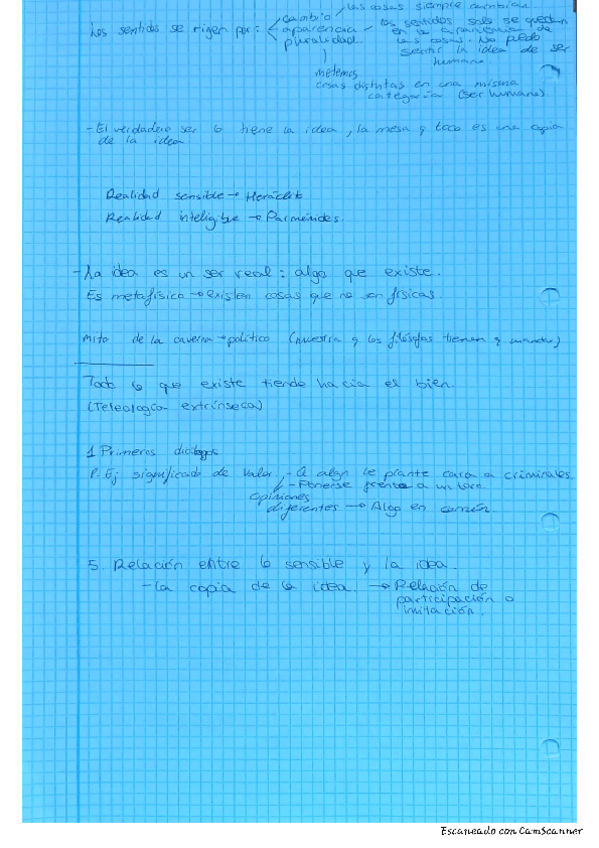 las cosas siempre cambian
Los sentidos se rigen por: cambio / los sentidos solo se quedan
apariencia en la apariencia de
pluralidad las cosas. No puedo
sentir la idea de ser
humano
metemos
cosas distintas en una misma
categoría (ser humano)
- El verdadero ser lo tiene la idea, la mesa y toco es una copia
de la idea
Realidad sensible → Heráclit
Realidad inteligible → Parménides.
- La idea es un ser real: algo que existe.
Es metafísico → existen cosas que no son físicas.
Mito de la caverna → político (muestra q los filósofos tienen q mandar)
Todo lo que existe tiende hacia el bien.
(Teleología extrínseca)
1 Primeros diálogos
P. Ej significado de valor - A algn le plante cara a criminales.
- Ponerse frente a un toro.
opiniones
diferentes → Algo en común.
5. Relación entre lo sensible y la idea.
- la copia de la idea. → Relación de
participación o
imitación.
Escaneado con CamScanner